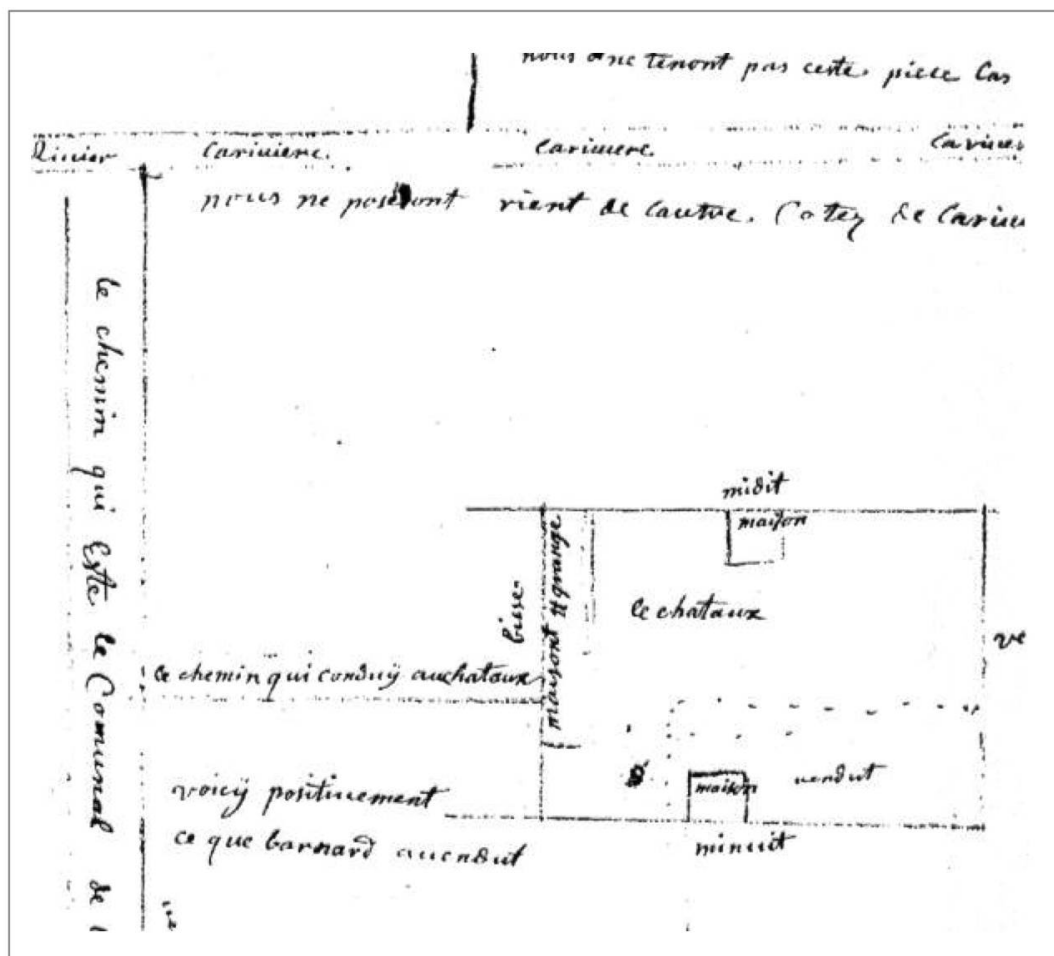 nous ne tenont pas ceste piece Las
Rivier Lariviere Lariviere Larivier
nous ne poseront rient de Lautre Cotez de Larivi
le chemin qui Este le Comunal de l
midit
maison
bisse
maisont & grange
le chataux
ve
le chemin qui conduij auchataux
vendut
maison
minuit
voicij positivement
ce que barnard avendut